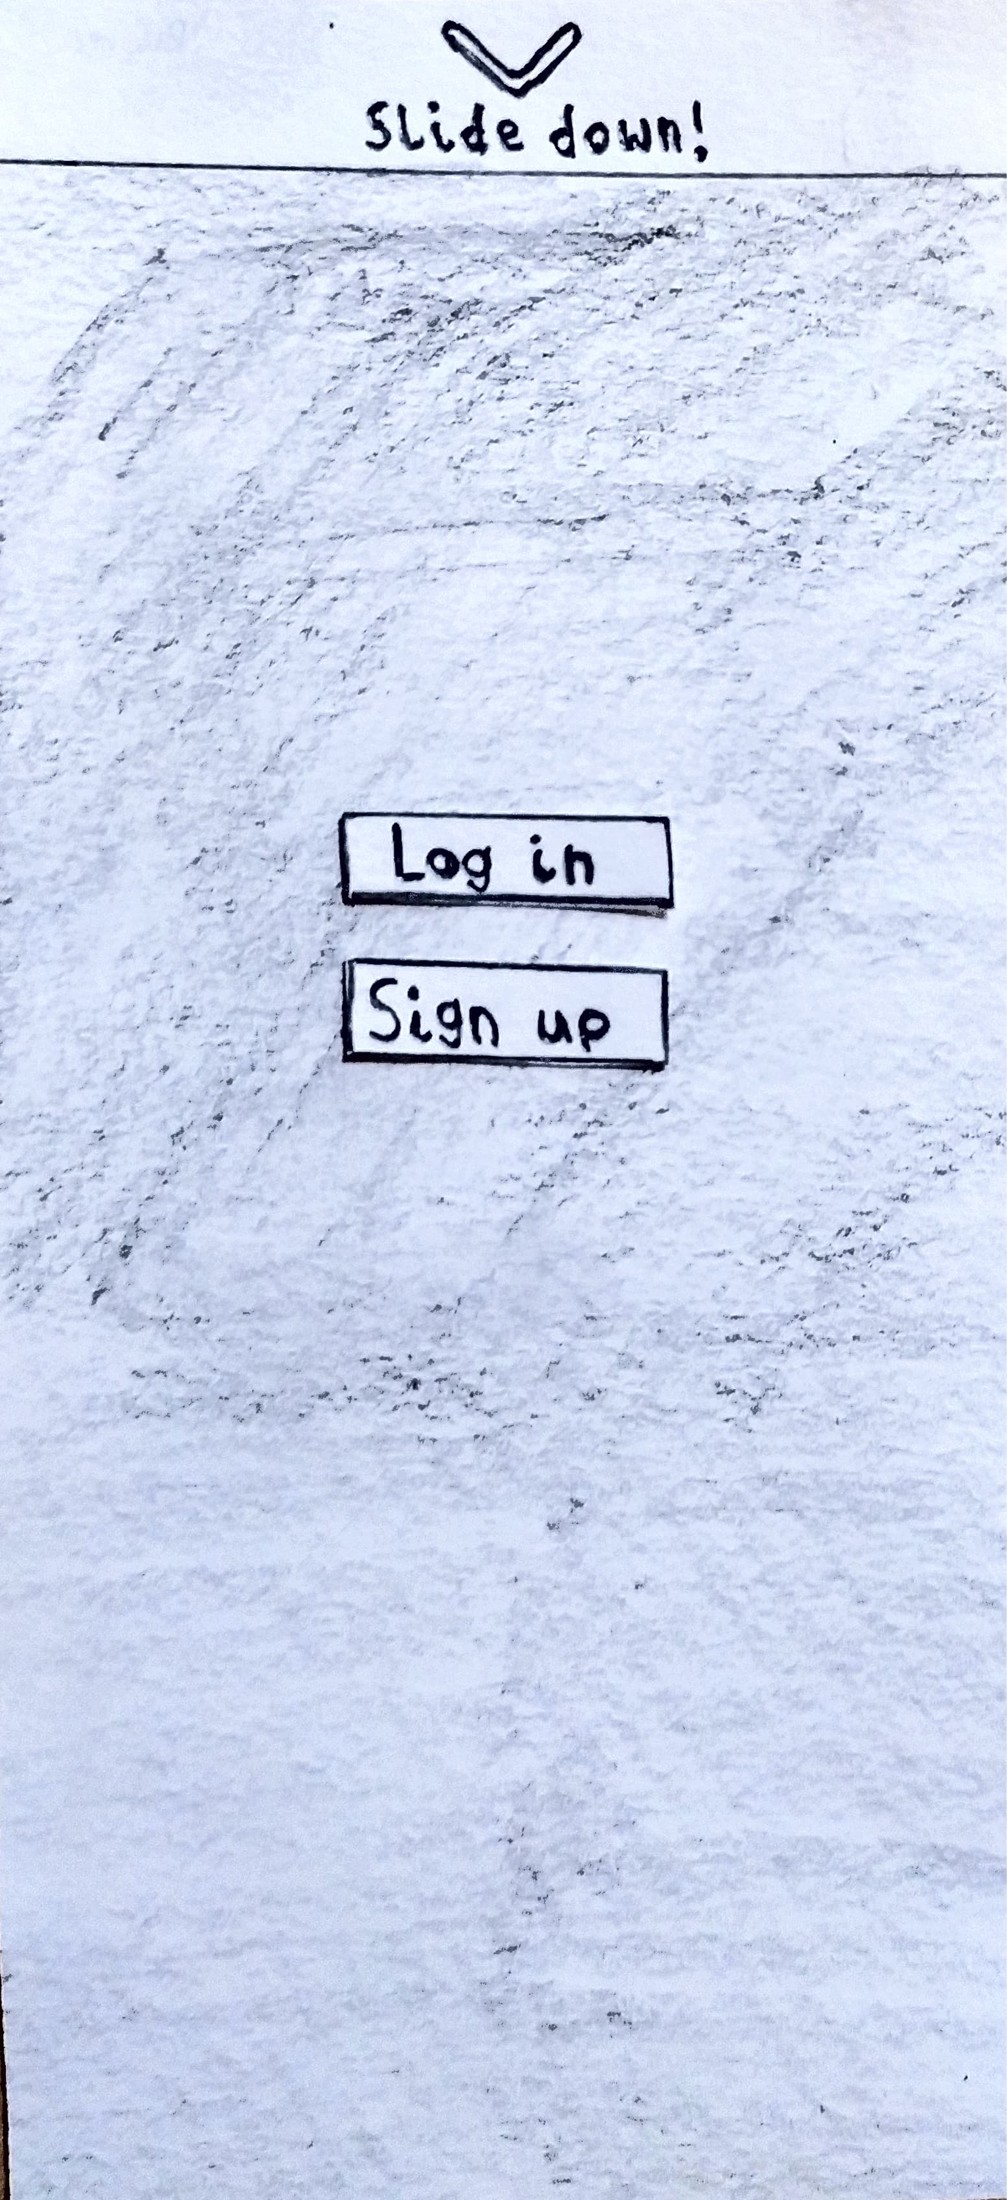 Slide down!
Log in
Sign up